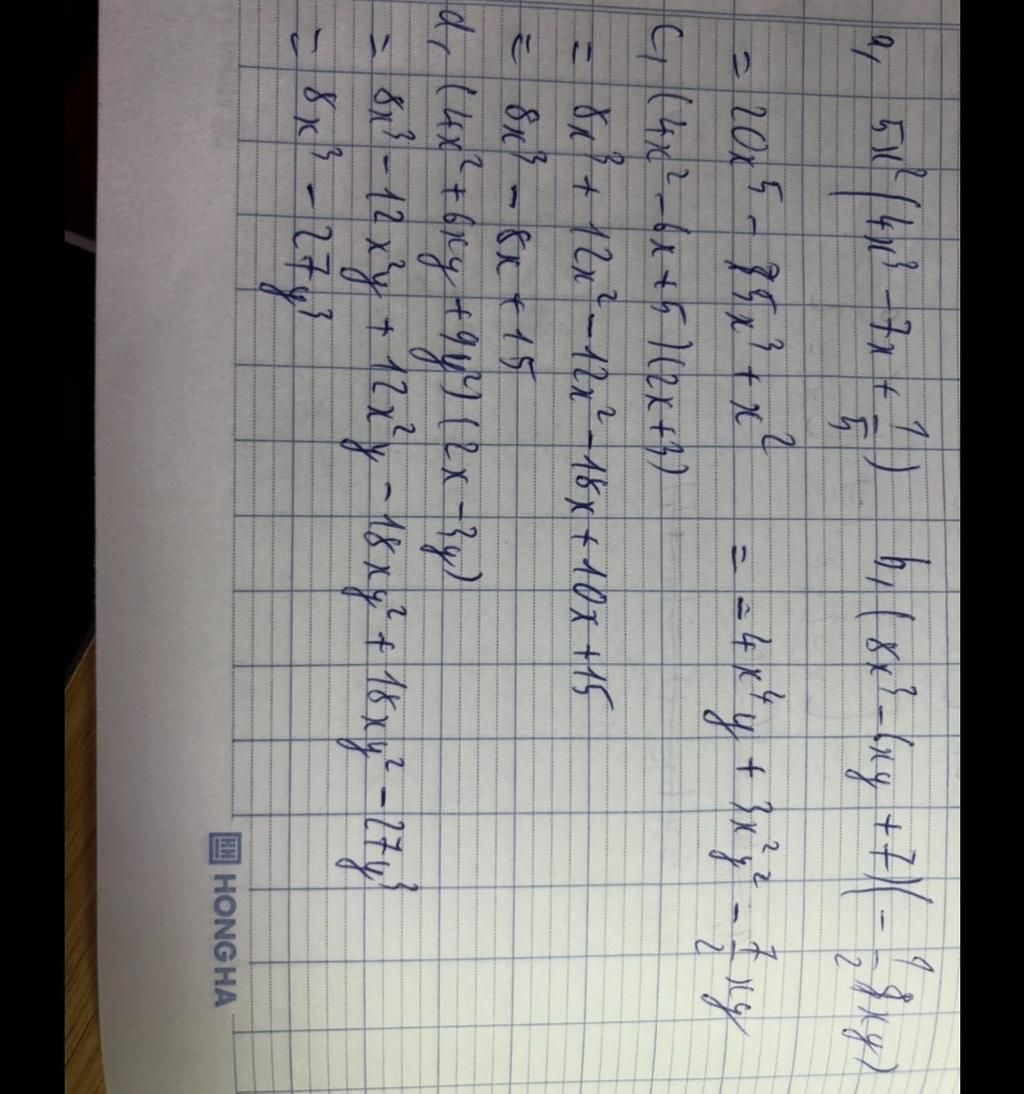 a, 5x²(4x³ - 7x + 1/5) b, (8x³ - 6xy + 7)(-1/2 xy)
= 20x⁵ - 35x³ + x² = -4x⁴y + 3x²y² - 7/2 xy
c, (4x² - 6x + 5)(2x + 3)
= 8x³ + 12x² - 12x² - 18x + 10x + 15
= 8x³ - 8x + 15
d, (4x² + 6xy + 9y²)(2x - 3y)
= 8x³ - 12x²y + 12x²y - 18xy² + 18xy² - 27y³
= 8x³ - 27y³
HONG HA